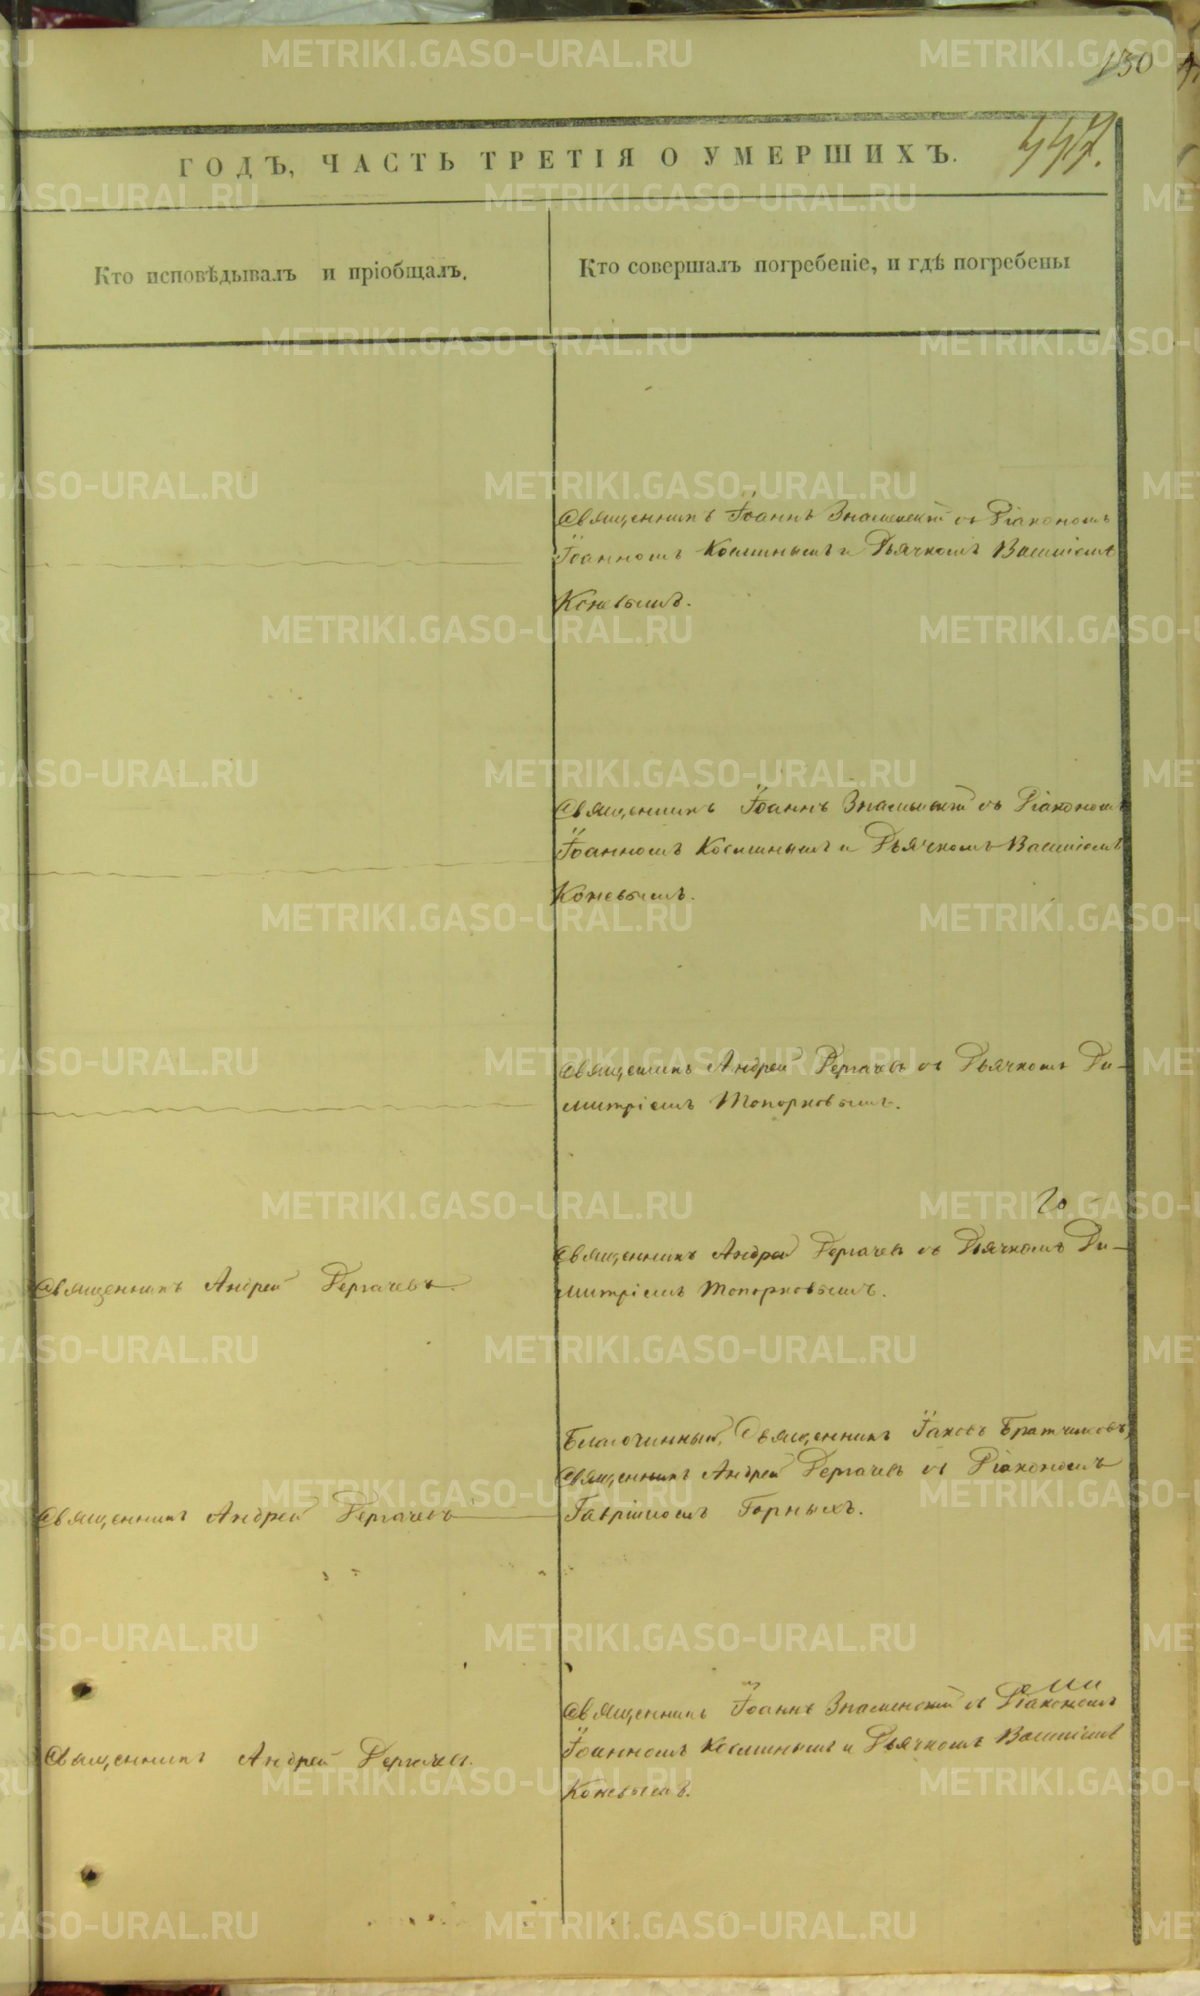 130
447.
ГОДЪ, ЧАСТЬ ТРЕТІЯ О УМЕРШИХЪ.
Кто исповѣдывалъ и пріобщалъ.
Кто совершалъ погребеніе, и гдѣ погребены
Священникъ Іоаннъ Знаменскій съ Діакономъ
Іоанномъ Косминымъ и Дьячкомъ Василіемъ
Коневымъ.
Священникъ Іоаннъ Знаменскій съ Діакономъ
Іоанномъ Косминымъ и Дьячкомъ Василіемъ
Коневымъ.
Священникъ Андрей Дергачевъ съ Дьячкомъ Ди-
митріемъ Топорковымъ.
Священникъ Андрей Дергачевъ.
Священникъ Андрей Дергачевъ съ Дьячкомъ Ди-
митріемъ Топорковымъ.
Священникъ Андрей Дергачевъ
Благочинный, Священникъ Іаковъ Братчиковъ,
Священникъ Андрей Дергачевъ съ Діакономъ
Гавріиломъ Горныхъ.
Священникъ Андрей Дергачевъ.
Священникъ Іоаннъ Знаменскій съ Діакономъ
Іоанномъ Косминымъ и Дьячкомъ Василіемъ
Коневымъ.
METRIKI.GASO-URAL.RU